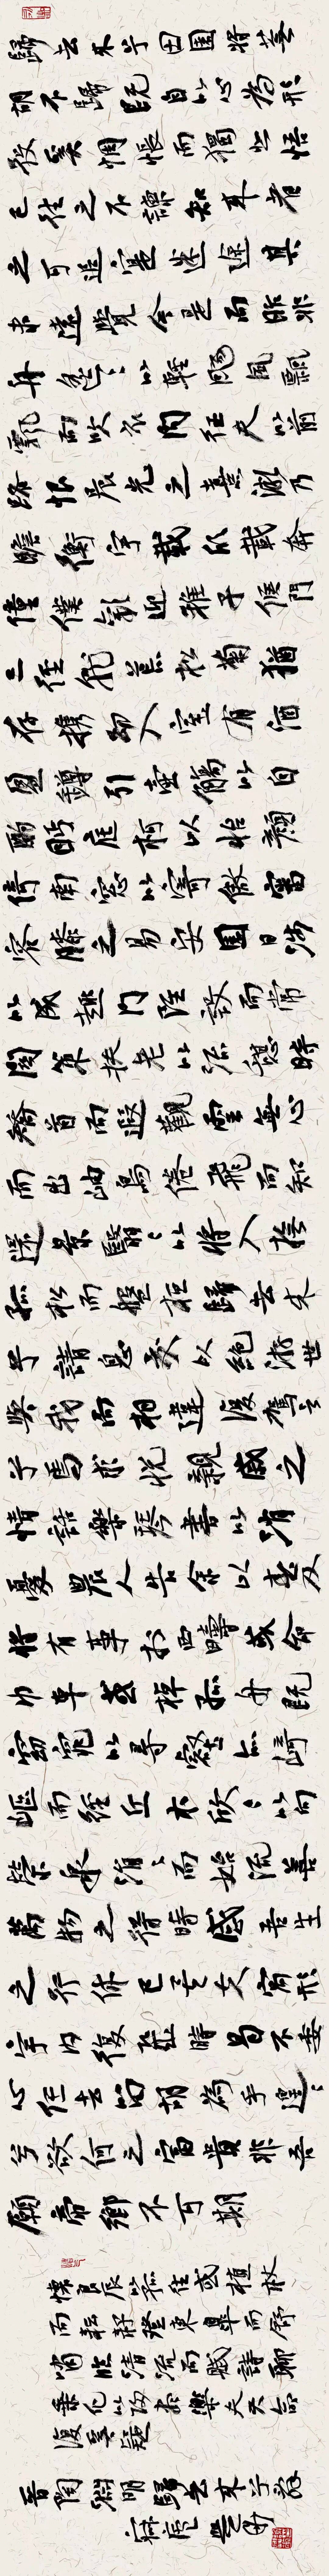 歸去来兮田園將蕪
胡不歸既自以心為形
役奚惆悵而獨悲悟
已往之不諫知来者
之可追寔迷途其
未遠覺今是而昨非
舟遙〻以輕颺風飄
飄而吹衣問征夫以前
路恨晨光之熹微乃
瞻衡宇載欣載奔
僮僕歡迎稚子候門
三徑就荒松菊猶
存携幼入室有酒
盈罇引壺觴以自
酌眄庭柯以怡顏
倚南窓以寄傲審
容膝之易安園日涉
以成趣門雖設而常
關策扶老以流憩時
矯首而遐觀雲無心
而出岫鳥倦飛而知
還景翳〻以將入撫
孤松而盤桓歸去来
兮請息交以絕游世
與我而相違復駕言
兮焉求悅親戚之
情話樂琴書以消
憂農人告余以春及
將有事於西疇或命
巾車或棹孤舟既
窈窕以尋壑亦崎
嶇而經丘木欣〻以向
榮泉涓〻而始流善
萬物之得時感吾生
之行休已矣夫寓形
宇內復幾時曷不委
心任去留胡為乎遑〻
兮欲何之富貴非吾
願帝鄉不可期
懷良辰以孤往或植杖
而耘耔登東皋而舒
嘯臨清流而賦詩聊
乘化以歸盡樂夫天命
復奚疑
晉陶淵明歸去来兮辭